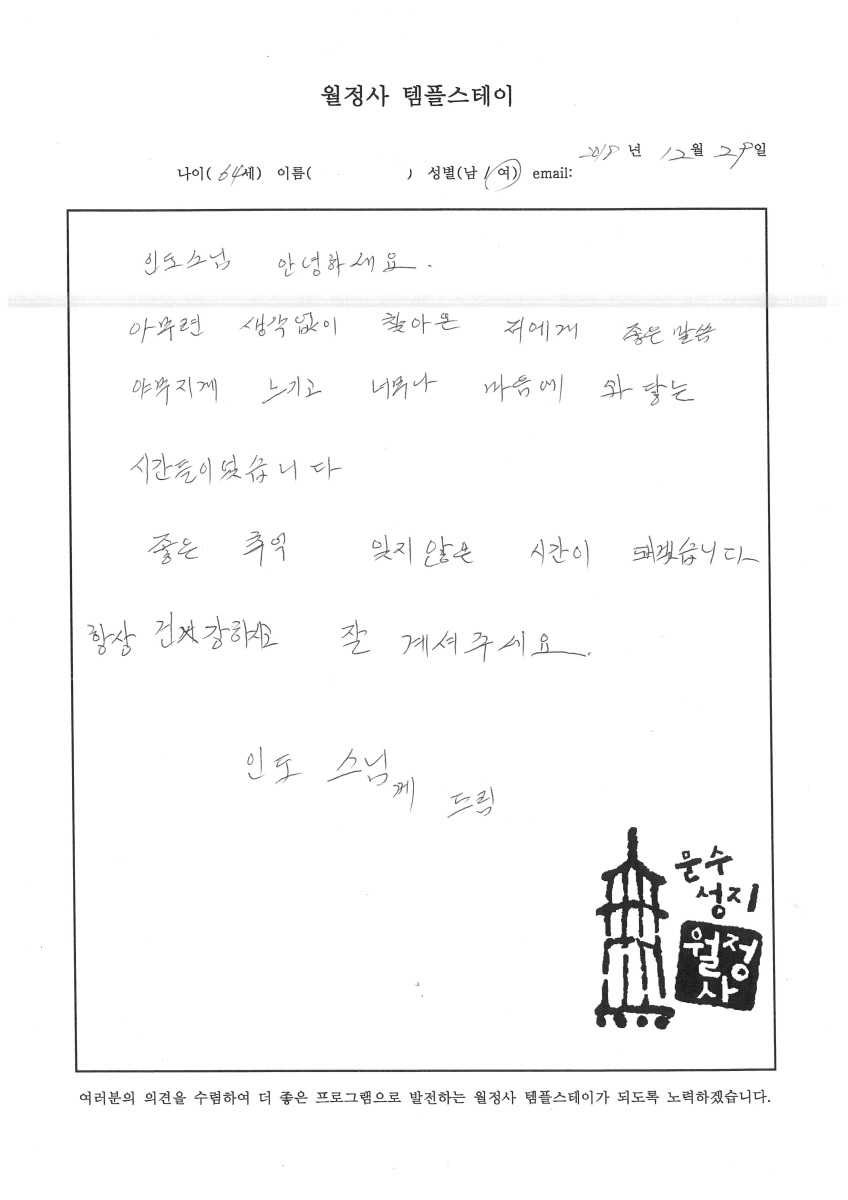 월정사 템플스테이
2018 년 12월 29일
나이( 64세) 이름( ) 성별(남 / 여) email:
인도스님 안녕하세요.
아무련 생각없이 찾아온 저에게 좋은 말씀
야무지게 느기고 너무나 마음에 와 닿는
시간들이였습니다
좋은 추억 잊지않은 시간이 되겠습니다
항상 건강하시고 잘 계셔주세요.
인도 스님께 드림
문수
성지
월정
사
여러분의 의견을 수렴하여 더 좋은 프로그램으로 발전하는 월정사 템플스테이가 되도록 노력하겠습니다.